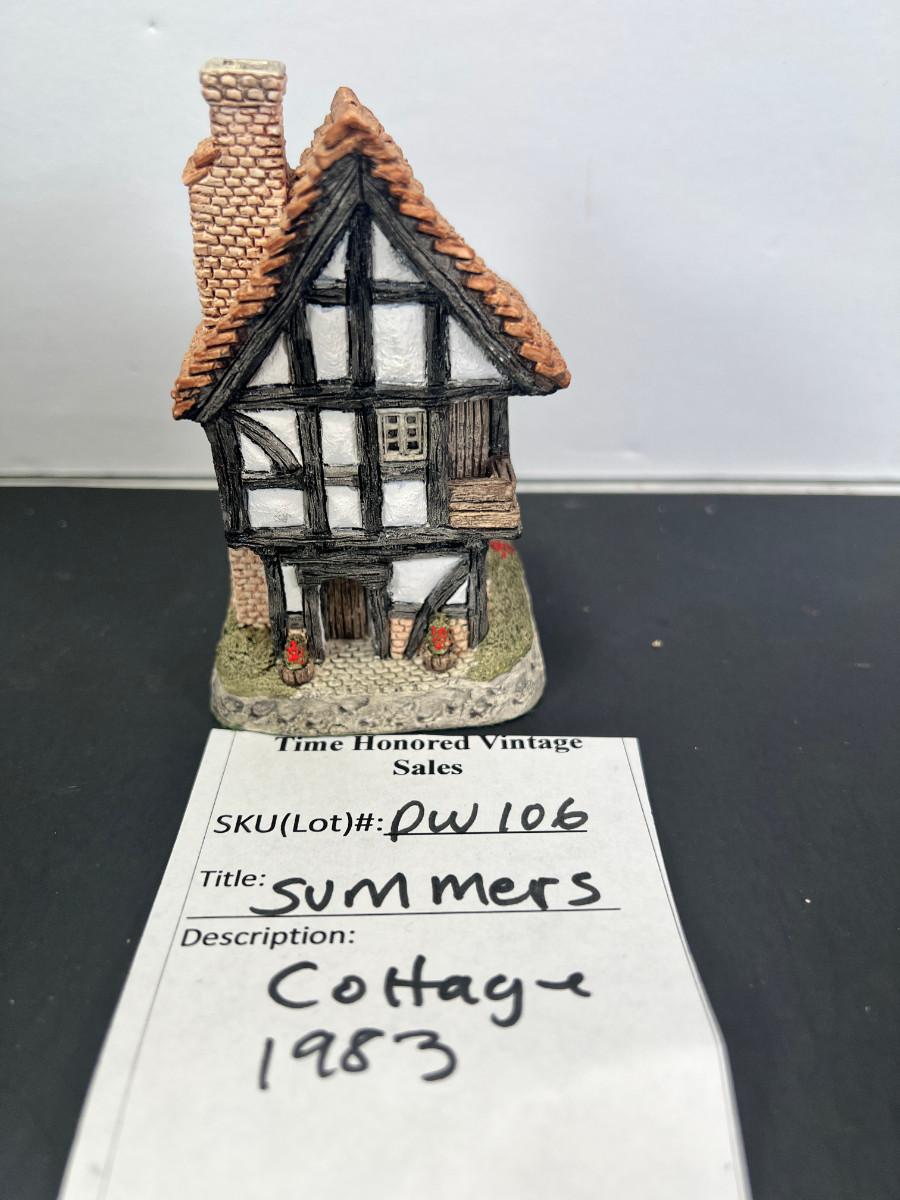 Time Honored Vintage
Sales
SKU(Lot)#: DW 106
Title: Summers
Description:
Cottage
1983